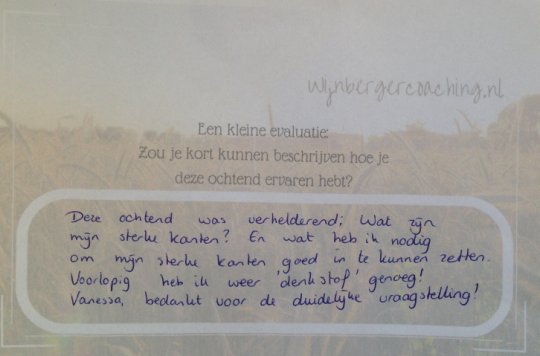 wijnbergercoaching.nl
Een kleine evaluatie:
Zou je kort kunnen beschrijven hoe je
deze ochtend ervaren hebt?
Deze ochtend was verhelderend; Wat zijn
mijn sterke kanten? En wat heb ik nodig
om mijn sterke kanten goed in te kunnen zetten.
Voorlopig heb ik weer 'denkstof' genoeg!
Vanessa, bedankt voor de duidelijke vraagstelling!